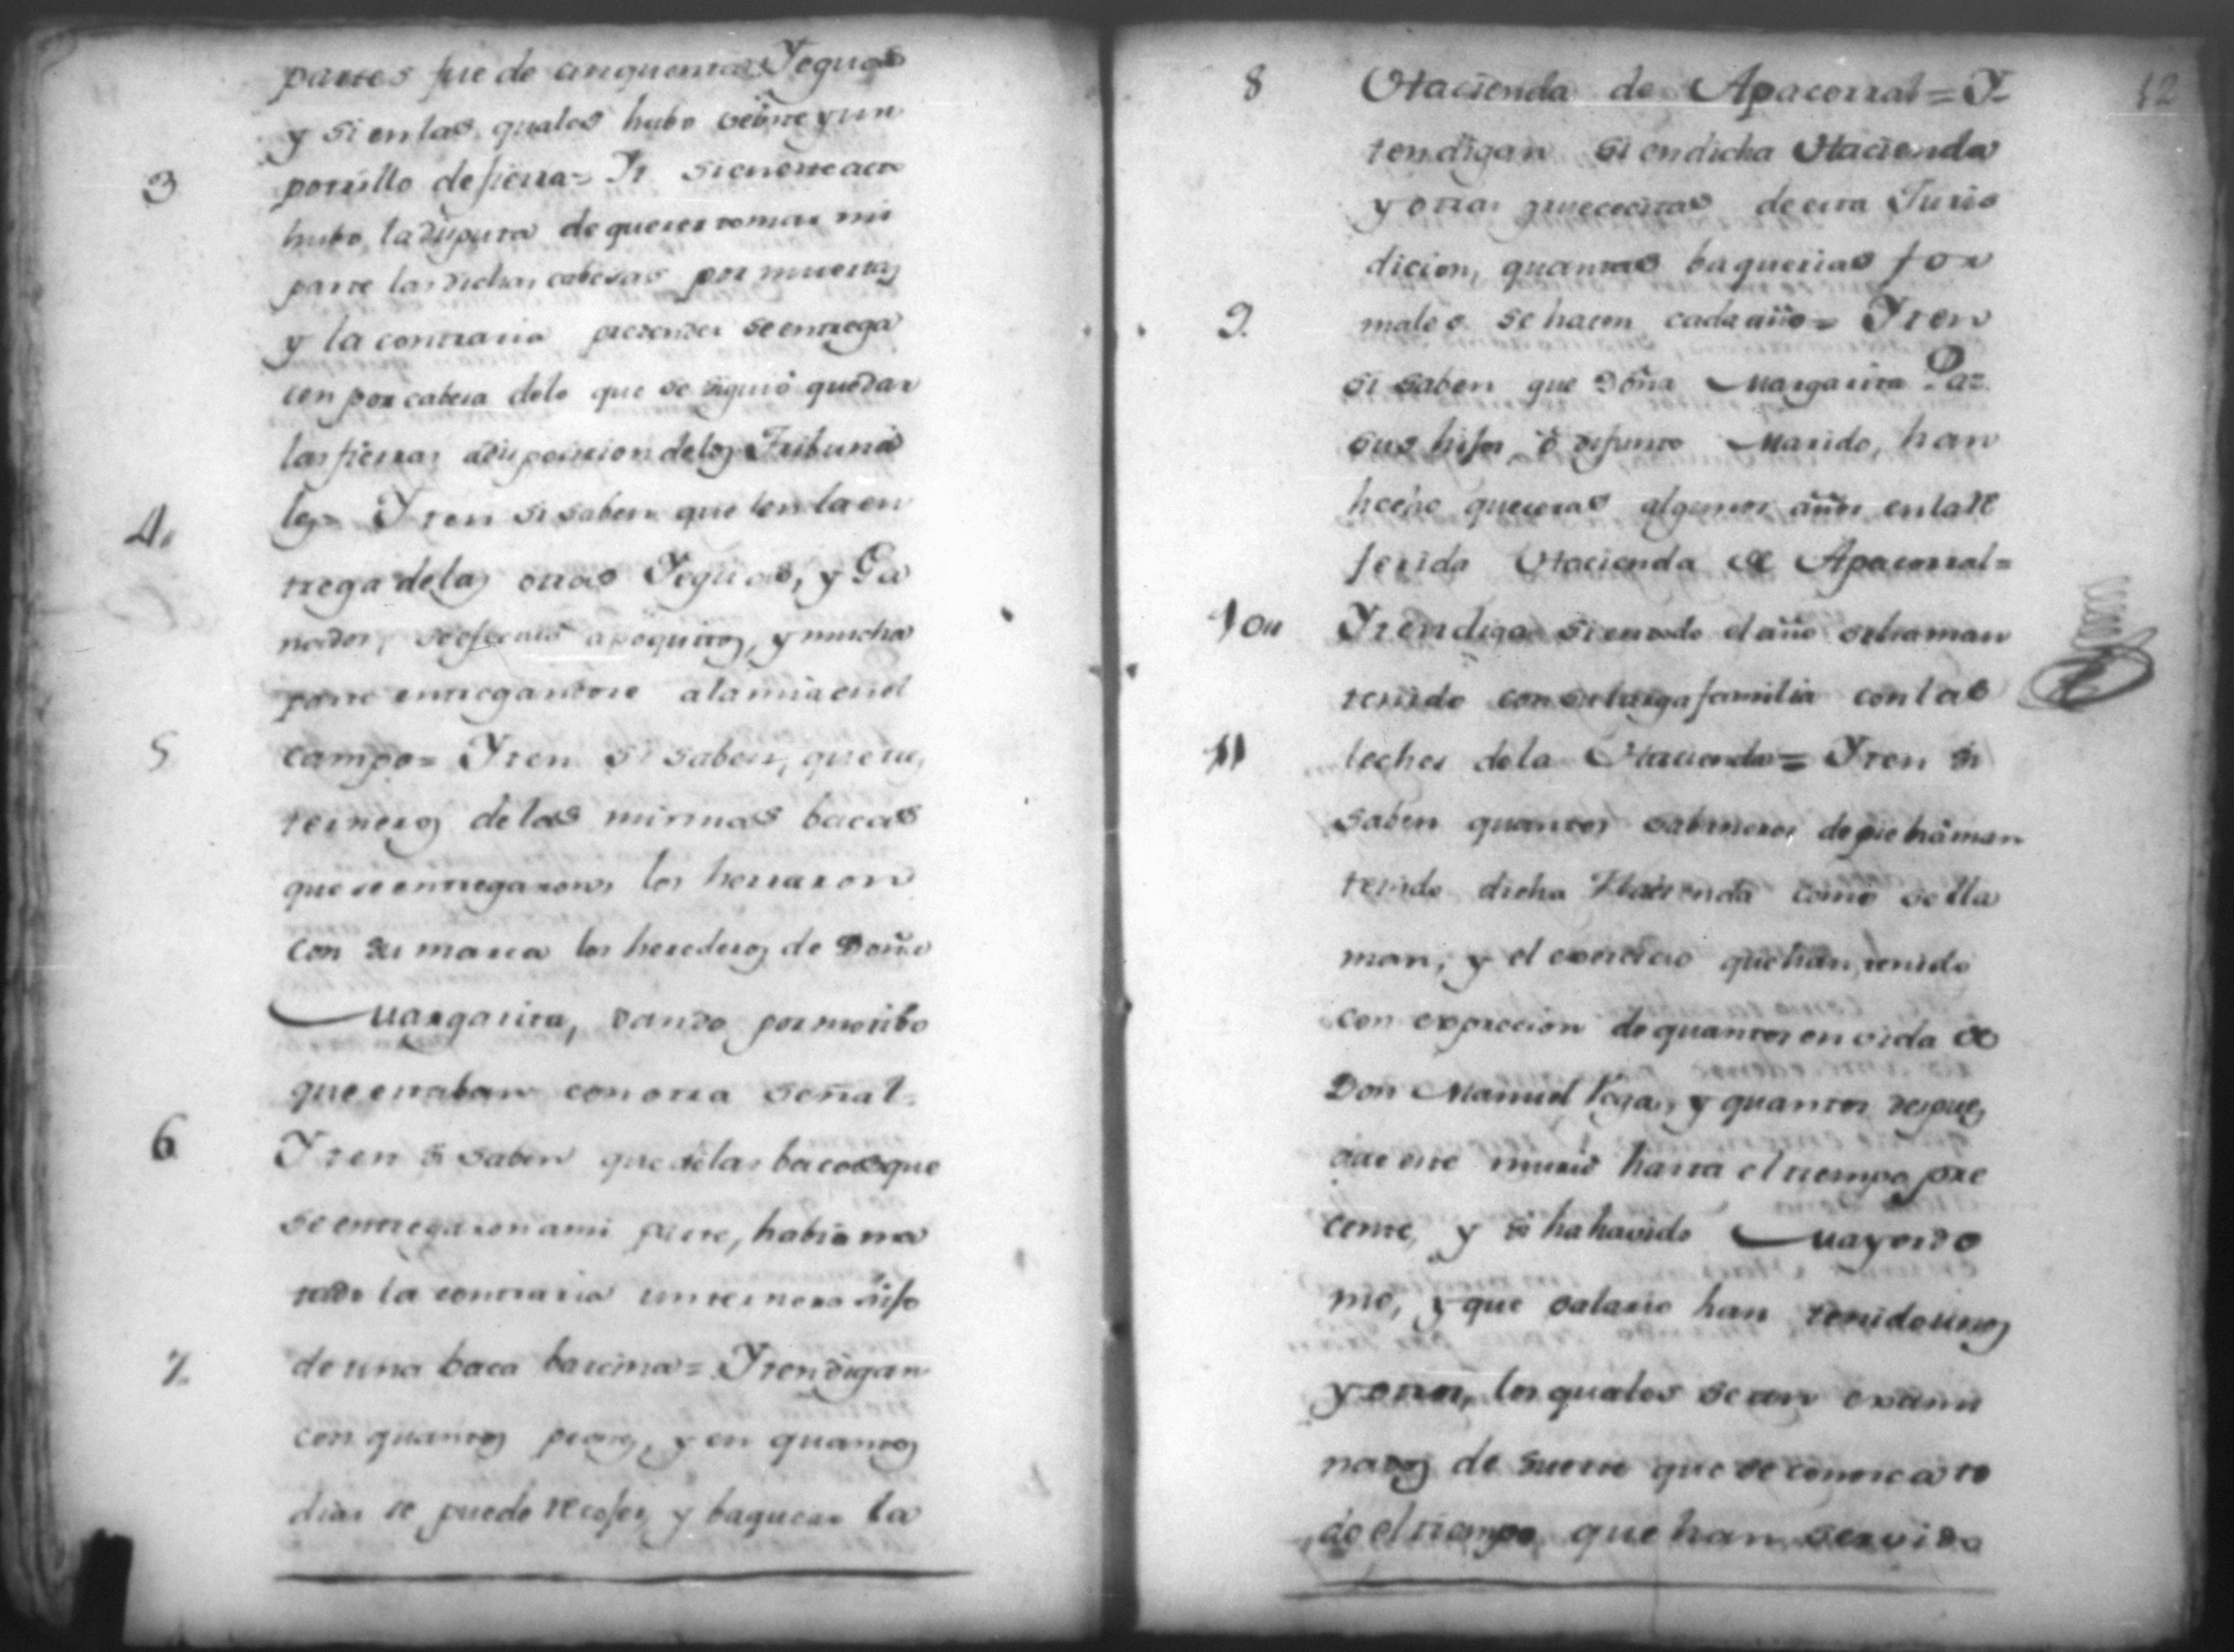 partes fue de cinquenta Yeguas
y si en las quales hubo veinte y un
3 potrillo de fierra = It. si en este acto
hubo la disputa de querer tomar mi
parte las dichas cabesas por muertas
y la contraria pretender se entrega
cen por cabesa de lo que se siguió quedar
las fierras a disposicion de los Tribuna
4. les = Yten si saben que en la en
trega de las otras Yeguas, y Ga
nados, se efectuó a poquitos, y mucha
parte entregandose a la mia en el
5 campo = Yten si saben, que
terneros de las mismas bacas
que se entregaron, los herraron
con su marca los herederos de Doña
Margarita, dando por motibo
que estaban con otra señal =
6 Yten si saben que de las bacas que
se entregaron a mi parte, habia ma
tado la contraria un ternero hijo
7. de una baca barcina = Yten digan
con quantos peones, y en quantos
dias se puede recojer, y baquear la
12
8 Hacienda de Apacorral = Y
ten digan si en dicha Hacienda
y otras de esta Juris
dicion, quantas baquerias for
9. males se hacen cada año = Yten
si saben que Doña Margarita Paz
sus hijos, ó difunto Marido, han
hecho queseras algunos años en la re
ferida Hacienda de Apacorral =
10 Yten diga si en todo el año se ha man
tenido con su larga familia con las
11 leches de la Hacienda = Yten si
saben quantos sabaneros de pie há man
tenido dicha Hacienda como se lla
man, y el exercicio que han tenido
con exprecion de quantos en vida de
Don Manuel Vega, y quantos despues
que este murió hasta el tiempo pre
cente, y si ha havido Mayordo
mo, y que salario han tenido unos
y otros, los quales seran exami
nados de suerte que se conosca to
do el tiempo que han servido